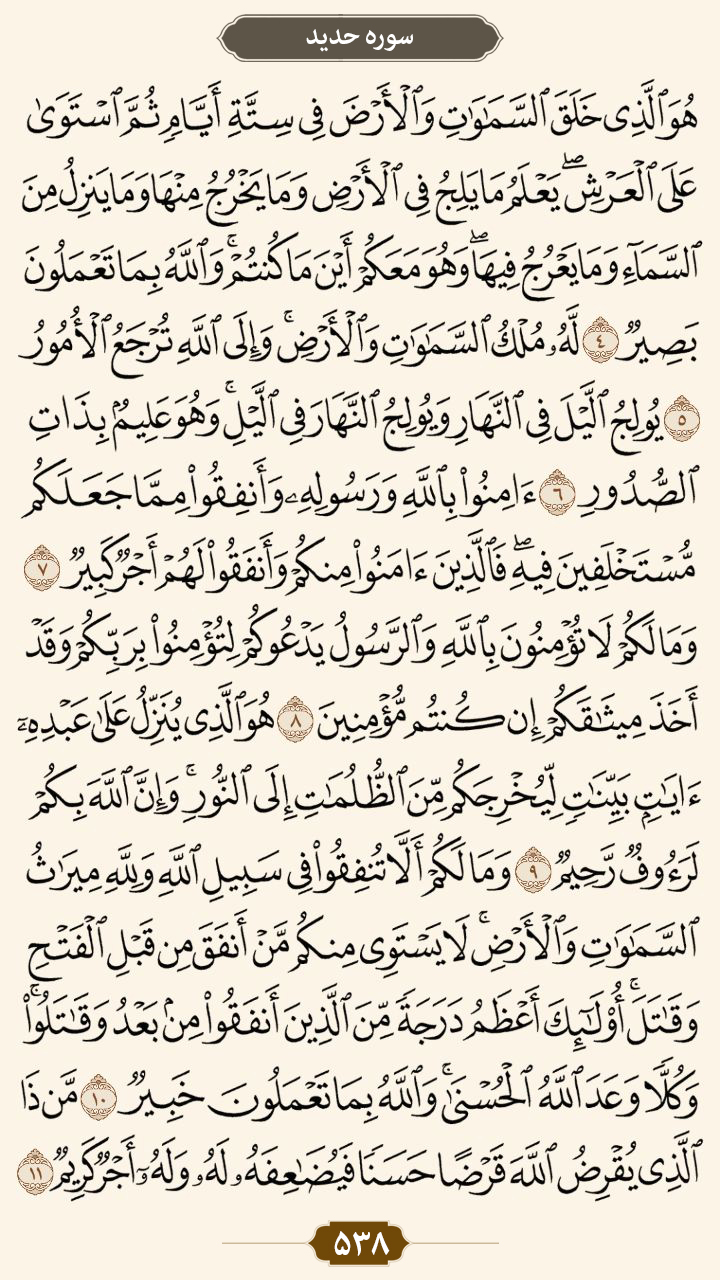 سوره حدید
هُوَ ٱلَّذِى خَلَقَ ٱلسَّمَـٰوَٰتِ وَٱلْأَرْضَ فِى سِتَّةِ أَيَّامٍ ثُمَّ ٱسْتَوَىٰ
عَلَى ٱلْعَرْشِ ۖ يَعْلَمُ مَا يَلِجُ فِى ٱلْأَرْضِ وَمَا يَخْرُجُ مِنْهَا وَمَا يَنزِلُ مِنَ
ٱلسَّمَآءِ وَمَا يَعْرُجُ فِيهَا ۖ وَهُوَ مَعَكُمْ أَيْنَ مَا كُنتُمْ ۚ وَٱللَّهُ بِمَا تَعْمَلُونَ
بَصِيرٌ ٤ لَّهُۥ مُلْكُ ٱلسَّمَـٰوَٰتِ وَٱلْأَرْضِ ۚ وَإِلَى ٱللَّهِ تُرْجَعُ ٱلْأُمُورُ
٥ يُولِجُ ٱلَّيْلَ فِى ٱلنَّهَارِ وَيُولِجُ ٱلنَّهَارَ فِى ٱلَّيْلِ ۚ وَهُوَ عَلِيمٌۢ بِذَاتِ
ٱلصُّدُورِ ٦ ءَامِنُوا۟ بِٱللَّهِ وَرَسُولِهِۦ وَأَنفِقُوا۟ مِمَّا جَعَلَكُم
مُّسْتَخْلَفِينَ فِيهِ ۖ فَٱلَّذِينَ ءَامَنُوا۟ مِنكُمْ وَأَنفَقُوا۟ لَهُمْ أَجْرٌ كَبِيرٌ ٧
وَمَا لَكُمْ لَا تُؤْمِنُونَ بِٱللَّهِ وَٱلرَّسُولُ يَدْعُوكُمْ لِتُؤْمِنُوا۟ بِرَبِّكُمْ وَقَدْ
أَخَذَ مِيثَـٰقَكُمْ إِن كُنتُم مُّؤْمِنِينَ ٨ هُوَ ٱلَّذِى يُنَزِّلُ عَلَىٰ عَبْدِهِۦٓ
ءَايَـٰتٍۭ بَيِّنَـٰتٍ لِّيُخْرِجَكُم مِّنَ ٱلظُّلُمَـٰتِ إِلَى ٱلنُّورِ ۚ وَإِنَّ ٱللَّهَ بِكُمْ
لَرَءُوفٌ رَّحِيمٌ ٩ وَمَا لَكُمْ أَلَّا تُنفِقُوا۟ فِى سَبِيلِ ٱللَّهِ وَلِلَّهِ مِيرَٰثُ
ٱلسَّمَـٰوَٰتِ وَٱلْأَرْضِ ۚ لَا يَسْتَوِى مِنكُم مَّنْ أَنفَقَ مِن قَبْلِ ٱلْفَتْحِ
وَقَـٰتَلَ ۚ أُو۟لَـٰٓئِكَ أَعْظَمُ دَرَجَةً مِّنَ ٱلَّذِينَ أَنفَقُوا۟ مِنۢ بَعْدُ وَقَـٰتَلُوا۟ ۚ
وَكُلًّا وَعَدَ ٱللَّهُ ٱلْحُسْنَىٰ ۚ وَٱللَّهُ بِمَا تَعْمَلُونَ خَبِيرٌ ١٠ مَّن ذَا
ٱلَّذِى يُقْرِضُ ٱللَّهَ قَرْضًا حَسَنًا فَيُضَـٰعِفَهُۥ لَهُۥ وَلَهُۥٓ أَجْرٌ كَرِيمٌ ١١
۵۳۸